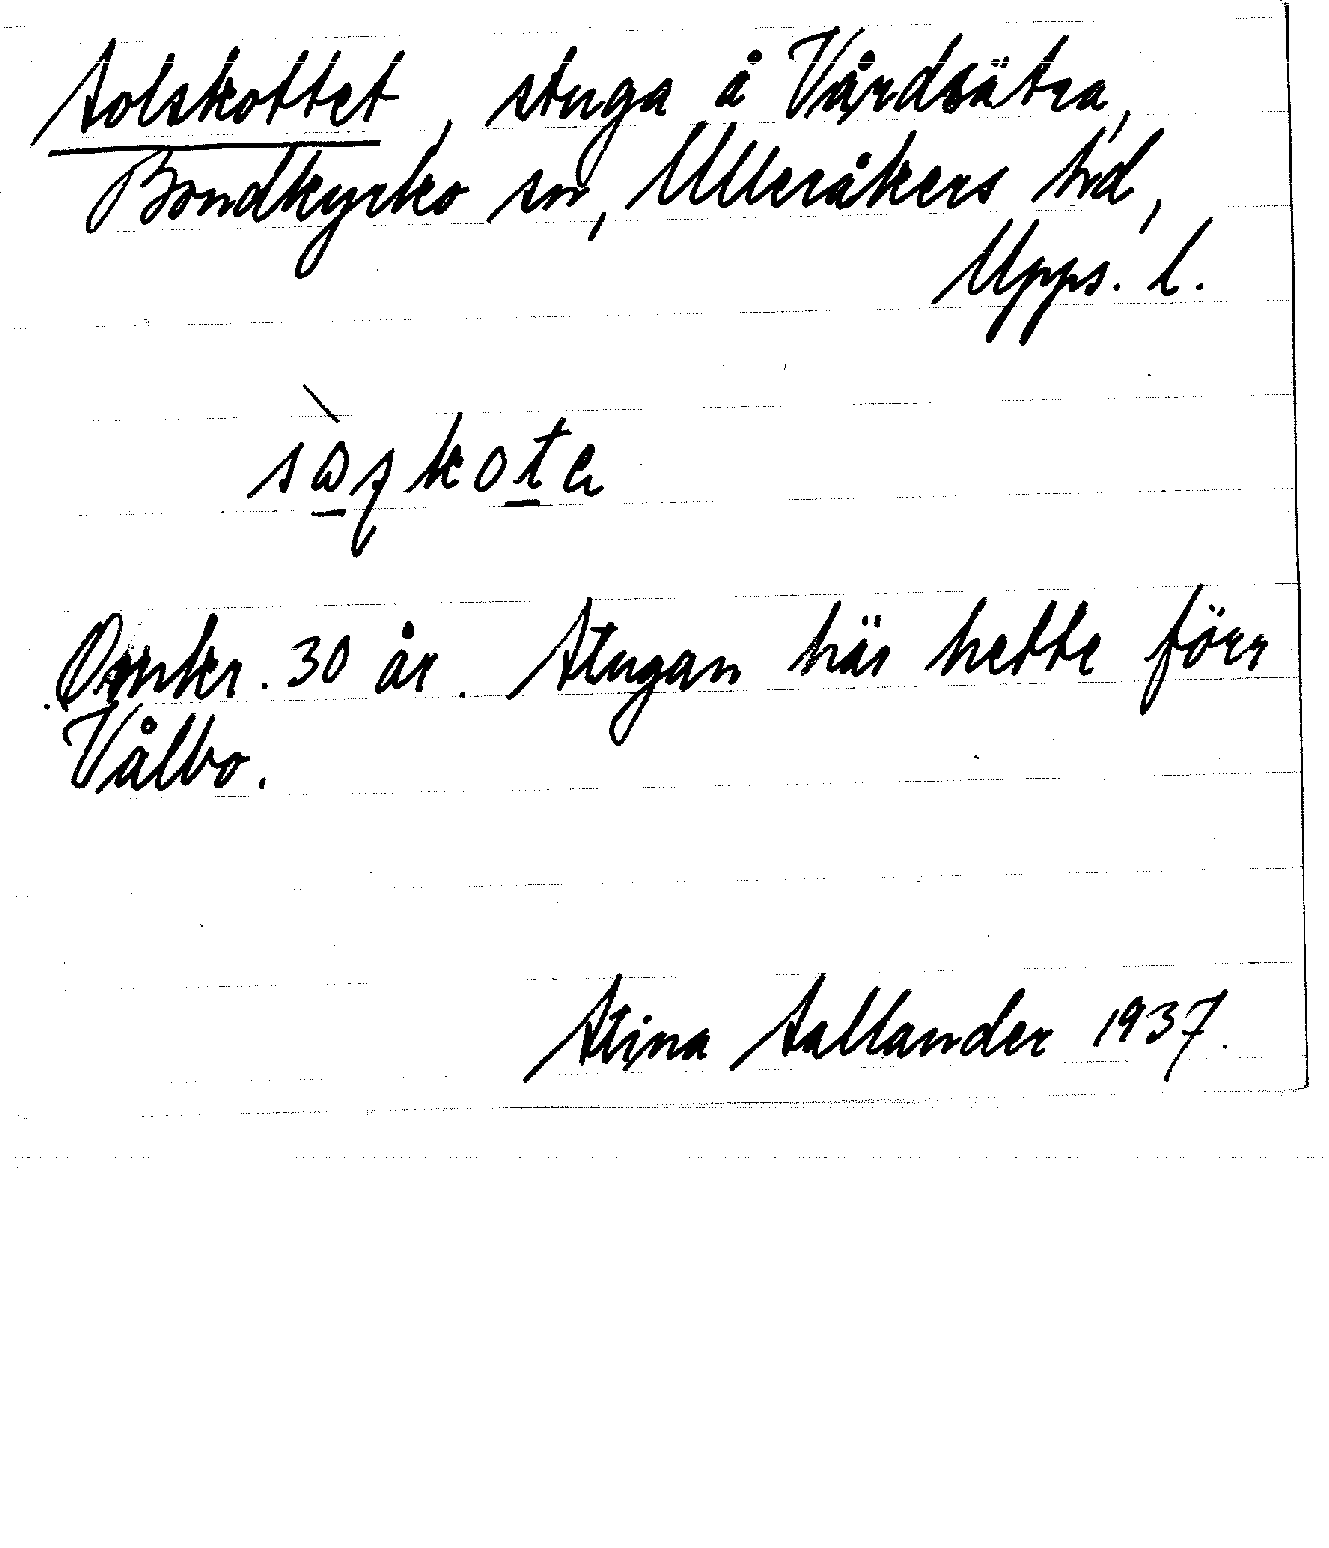 Solskottet, stuga å Vårdsätra,
Bondkyrko sn, Ulleråkers hd,
Upps. l.
Omkr. 30 år. Stugan här hette förr
Vålbo.
Stina Sallander 1937.